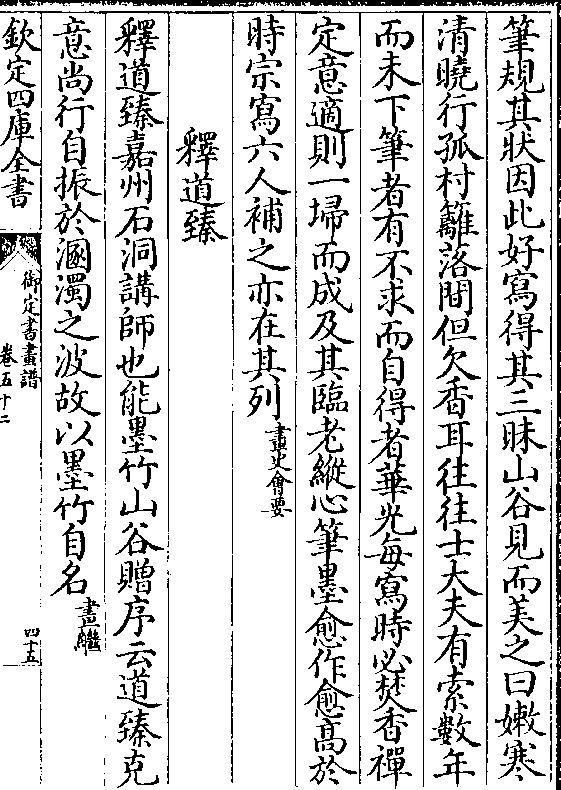 筆規其狀因此好寫得其三昧山谷見而美之曰嫩寒
清曉行孤村籬落間但欠香耳往往士大夫有索數年
而未下筆者有不求而自得者華光每寫時必焚香禪
定意適則一埽而成及其臨老縱心筆墨愈作愈高於
時宗寫六人補之亦在其列畫史會要
釋道臻
釋道臻嘉州石洞講師也能墨竹山谷贈序云道臻克
意尚行自振於溷濁之波故以墨竹自名畫繼
欽定四庫全書
御定書畫譜
卷五十二
四十五